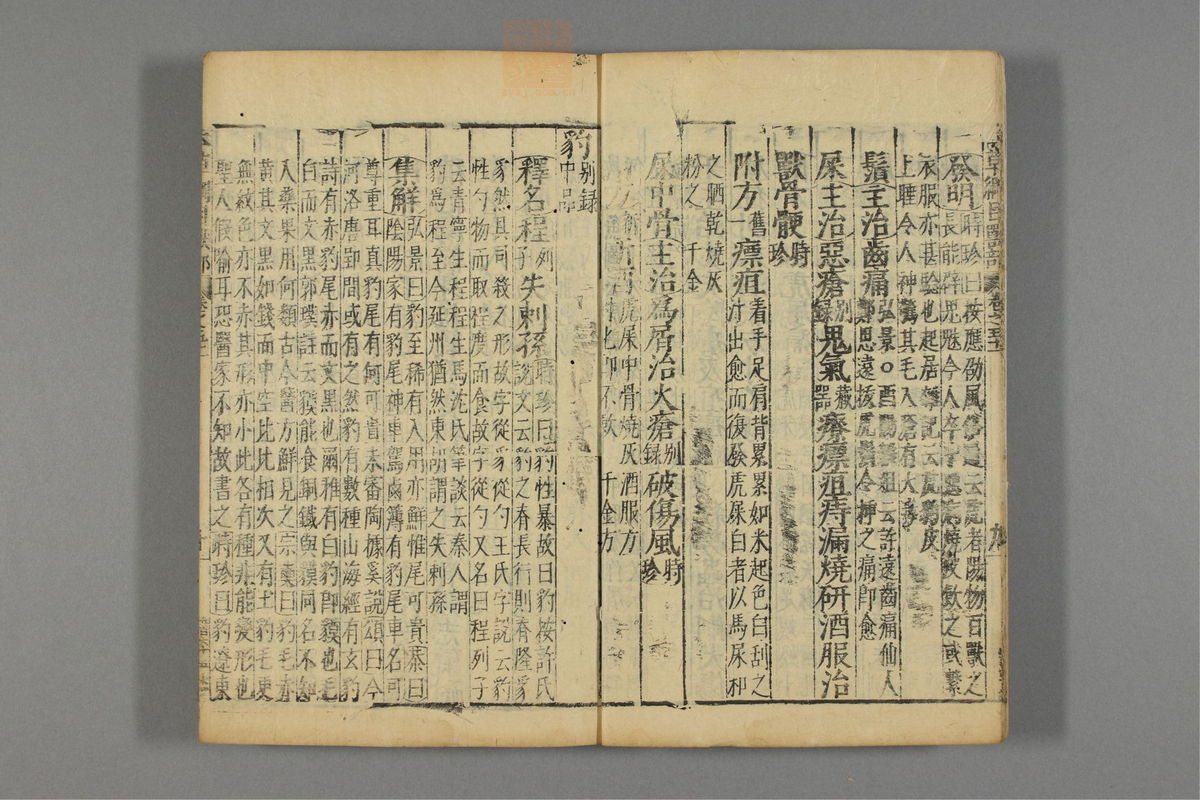 發明時珍曰按應劭風俗通云虎者陽物百獸之
長能辟鬼魅今人卒中惡病燒皮飲之或繫
衣服亦甚驗也起居雜記云虎豹皮
上睡令人神驚其毛入瘡有大毒
鬚主治齒痛弘景○酉陽雜俎云許遠齒痛仙人
鄭思遠拔虎鬚令揷之痛卽愈
屎主治惡瘡別錄鬼氣藏器療瘭疽痔漏燒研酒服治
獸骨骾時珍
附方舊一瘭疽着手足肩背累累如米起色白刮之
汁出愈而復發虎屎白者以馬尿和
之晒乾燒灰
粉之 千金
屎中骨主治爲屑治火瘡別錄破傷風時珍
斷酒虎屎中骨燒灰酒服方
寸匕卽不飮 千金方
豹別錄中品
釋名程列子失刺孫時珍曰豹性暴故曰豹按許氏
說文云豹之脊長行則脊隆豸
豸然且司殺之形故字從豸從勺王氏字說云豹
性勺物而取程度而食故字從勺又名曰程列子
云青寧生程程生馬沈氏筆談云秦人謂
豹爲程至今延州猶然東胡謂之失刺孫
集解弘景曰豹至稀有入用亦鮮惟尾可貴恭曰
陰陽家有豹尾神車駕鹵簿有豹尾車名可
尊重耳真豹尾有何可貴未審陶據奚說頌曰今
河洛唐郢間或有之然豹有數種山海經有玄豹
詩有赤豹尾赤而文黑也爾雅有白豹卽貘也毛
白而文黑郭璞註云貘能食銅鐵與貘同名不知
入藥果用何類古今醫方鮮見之宗奭曰豹毛赤
黃其文黑如錢而中空比比相次又有土豹毛更
無紋色亦不赤其形亦小此各有種非能變形也
聖人假喻耳恐醫家不知故書之時珍曰豹遼東